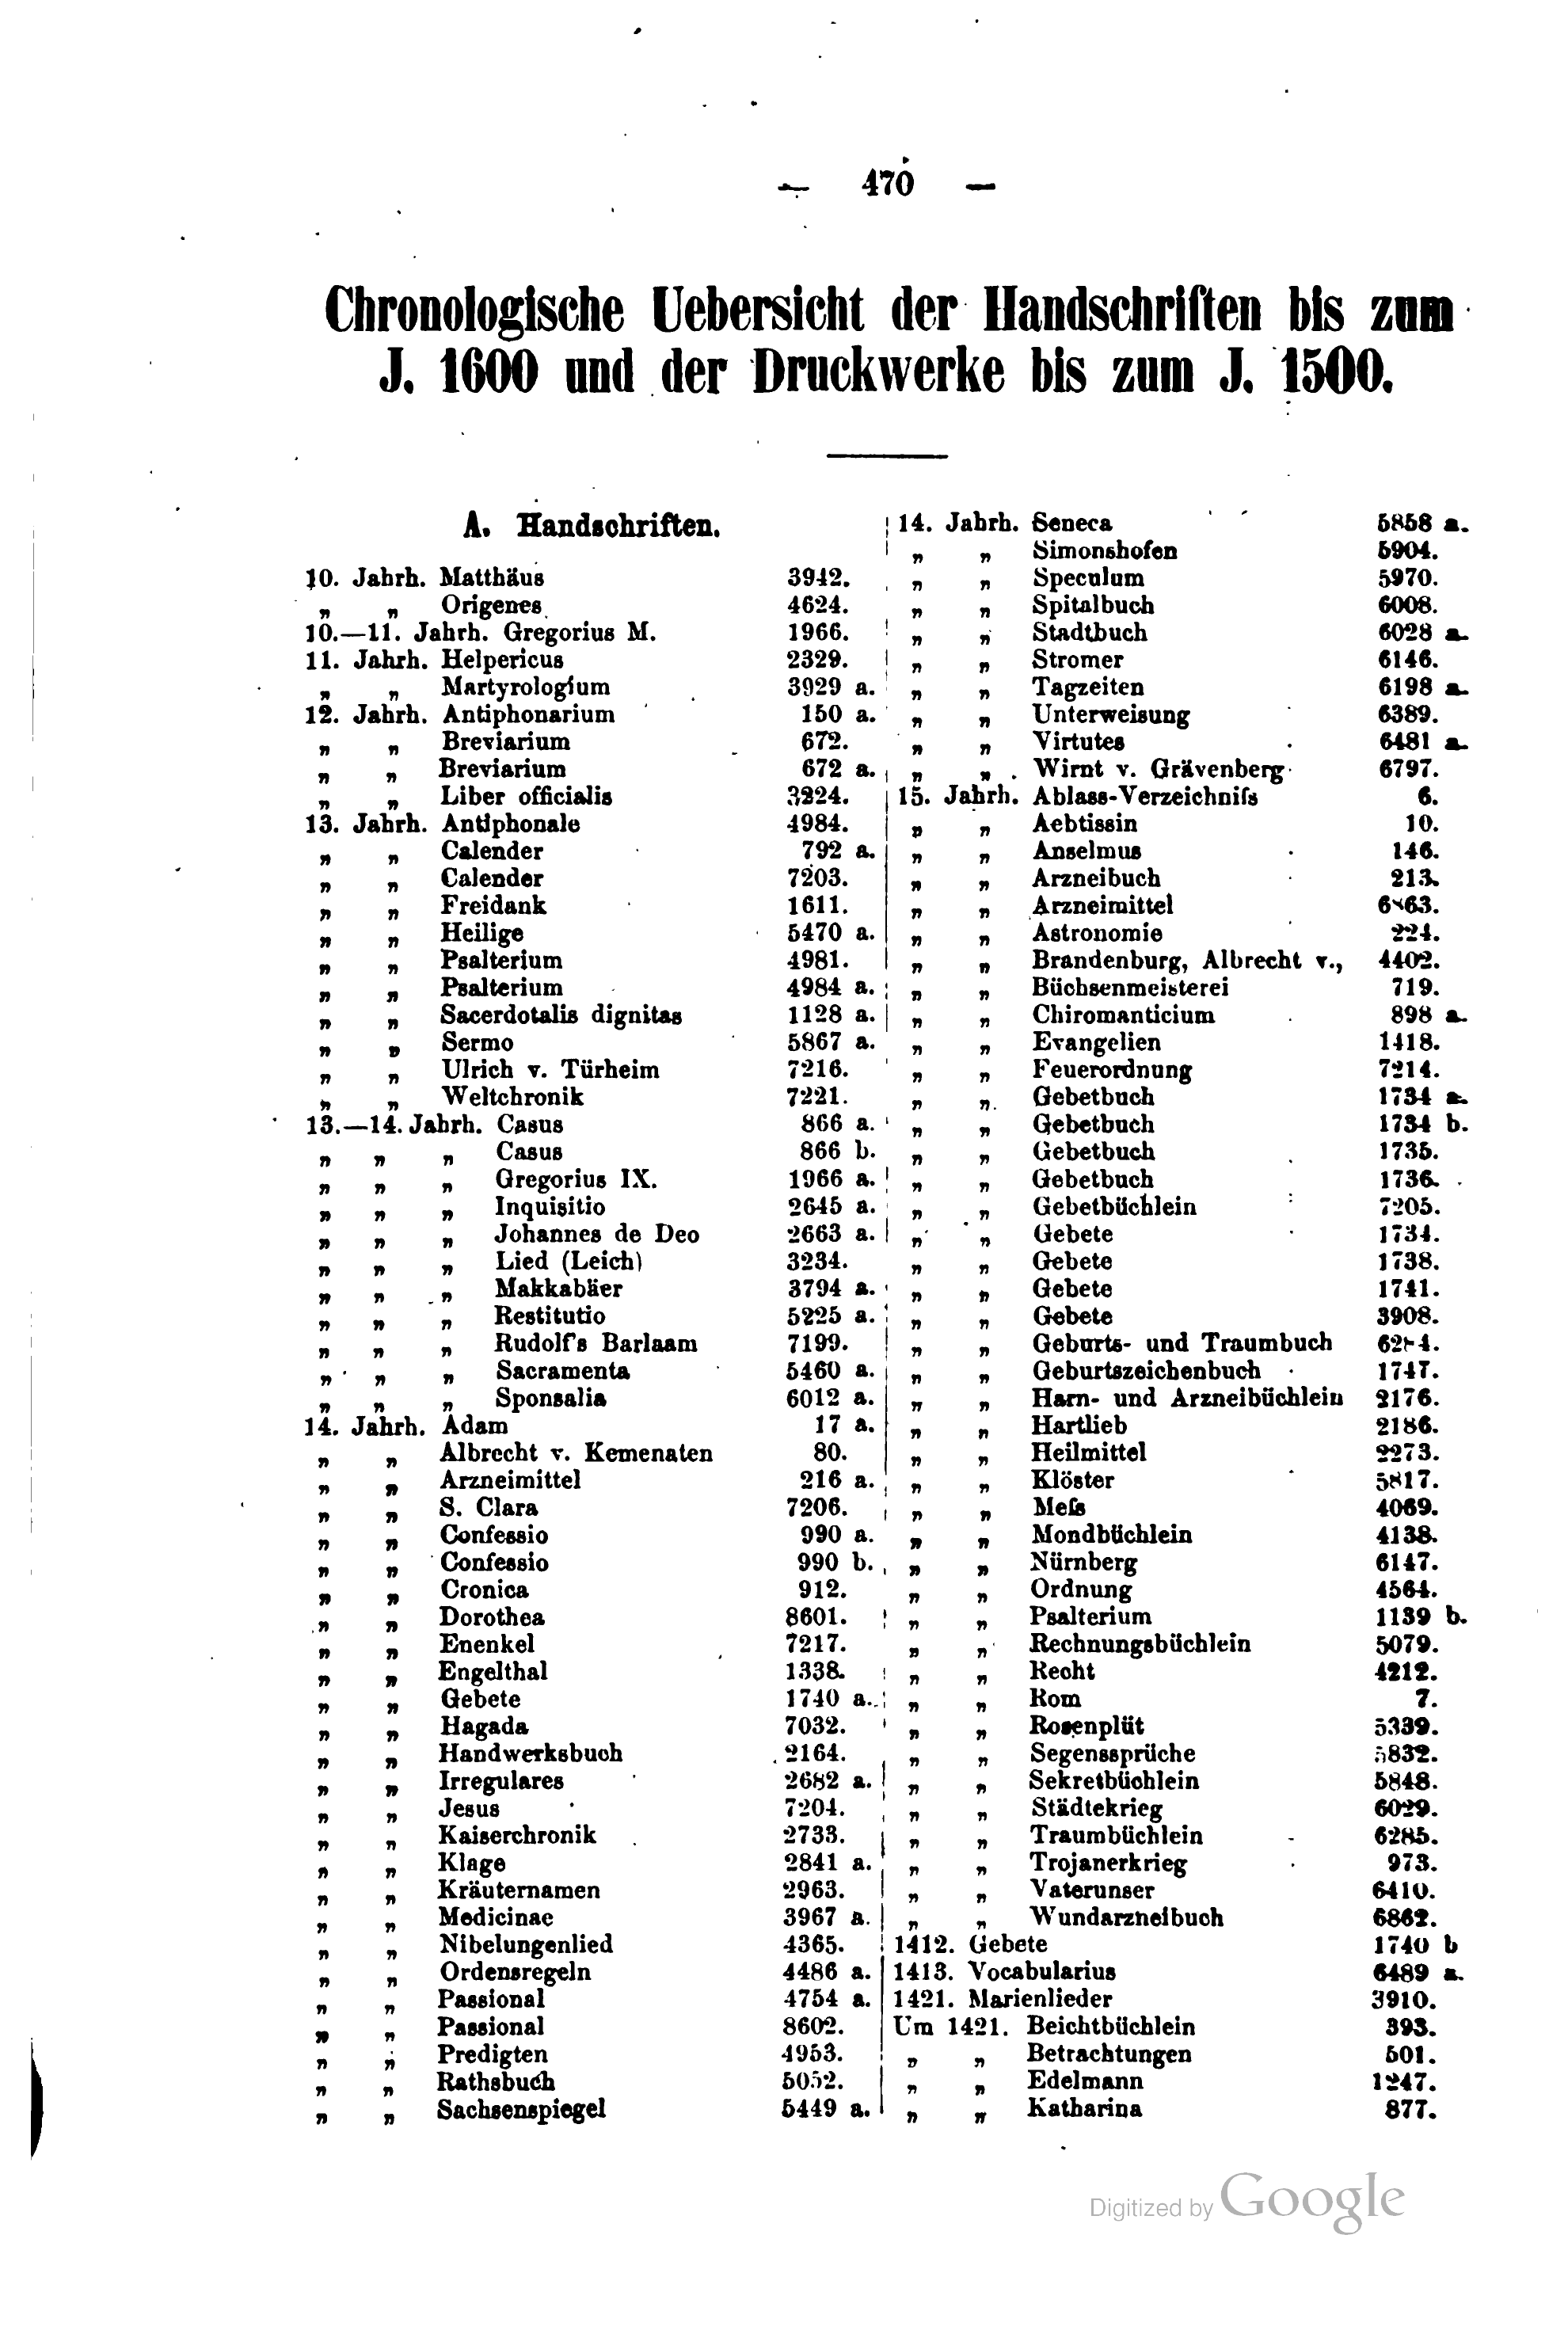 — 470 —
Chronologische Uebersicht der Handschriften bis zum
J. 1600 und der Druckwerke bis zum J. 1500.
A. Handschriften.
10. Jahrh. Matthäus 3942.
„ „ Origenes 4624.
10.—11. Jahrh. Gregorius M. 1966.
11. Jahrh. Helpericus 2329.
„ „ Martyrologium 3929 a.
12. Jahrh. Antiphonarium 150 a.
„ „ Breviarium 672.
„ „ Breviarium 672 a.
„ „ Liber officialis 3224.
13. Jahrh. Antiphonale 4984.
„ „ Calender 792 a.
„ „ Calender 7203.
„ „ Freidank 1611.
„ „ Heilige 5470 a.
„ „ Psalterium 4981.
„ „ Psalterium 4984 a.
„ „ Sacerdotalis dignitas 1128 a.
„ „ Sermo 5867 a.
„ „ Ulrich v. Türheim 7216.
„ „ Weltchronik 7221.
13.—14. Jahrh. Casus 866 a.
„ „ „ Casus 866 b.
„ „ „ Gregorius IX. 1966 a.
„ „ „ Inquisitio 2645 a.
„ „ „ Johannes de Deo 2663 a.
„ „ „ Lied (Leich) 3234.
„ „ „ Makkabäer 3794 a.
„ „ „ Restitutio 5225 a.
„ „ „ Rudolf's Barlaam 7199.
„ „ „ Sacramenta 5460 a.
„ „ „ Sponsalia 6012 a.
14. Jahrh. Adam 17 a.
„ „ Albrecht v. Kemenaten 80.
„ „ Arzneimittel 216 a.
„ „ S. Clara 7206.
„ „ Confessio 990 a.
„ „ Confessio 990 b.
„ „ Cronica 912.
„ „ Dorothea 8601.
„ „ Enenkel 7217.
„ „ Engelthal 1338.
„ „ Gebete 1740 a.
„ „ Hagada 7032.
„ „ Handwerksbuch 2164.
„ „ Irregulares 2682 a.
„ „ Jesus 7204.
„ „ Kaiserchronik 2733.
„ „ Klage 2841 a.
„ „ Kräuternamen 2963.
„ „ Medicinae 3967 a.
„ „ Nibelungenlied 4365.
„ „ Ordensregeln 4486 a.
„ „ Passional 4754 a.
„ „ Passional 8602.
„ „ Predigten 4953.
„ „ Rathsbuch 5052.
„ „ Sachsenspiegel 5449 a.
14. Jahrh. Seneca 5858 a.
„ „ Simonshofen 5904.
„ „ Speculum 5970.
„ „ Spitalbuch 6008.
„ „ Stadtbuch 6028 a.
„ „ Stromer 6146.
„ „ Tagzeiten 6198 a.
„ „ Unterweisung 6389.
„ „ Virtutes 6481 a.
„ „ Wirnt v. Grävenberg 6797.
15. Jahrh. Ablass-Verzeichniſs 6.
„ „ Aebtissin 10.
„ „ Anselmus 146.
„ „ Arzneibuch 213.
„ „ Arzneimittel
„ „ Astronomie 224.
„ „ Brandenburg, Albrecht v., 4402.
„ „ Büchsenmeisterei 719.
„ „ Chiromanticium 898 a.
„ „ Evangelien 1418.
„ „ Feuerordnung 7214.
„ „ Gebetbuch 1734 a.
„ „ Gebetbuch 1734 b.
„ „ Gebetbuch 1735.
„ „ Gebetbuch 1736.
„ „ Gebetbüchlein 7205.
„ „ Gebete 1734.
„ „ Gebete 1738.
„ „ Gebete 1741.
„ „ Gebete 3908.
„ „ Geburts- und Traumbuch
„ „ Geburtszeichenbuch 1747.
„ „ Harn- und Arzneibüchlein 2176.
„ „ Hartlieb 2186.
„ „ Heilmittel 2273.
„ „ Klöster 5817.
„ „ Meſs 4069.
„ „ Mondbüchlein 4138.
„ „ Nürnberg 6147.
„ „ Ordnung 4564.
„ „ Psalterium 1139 b.
„ „ Rechnungsbüchlein 5079.
„ „ Recht 4212.
„ „ Rom 7.
„ „ Rosenplüt 5339.
„ „ Segenssprüche 5832.
„ „ Sekretbüchlein 5848.
„ „ Städtekrieg 6029.
„ „ Traumbüchlein 6285.
„ „ Trojanerkrieg 973.
„ „ Vaterunser 6410.
„ „ Wundarzneibuch 6862.
1412. Gebete 1740 b
1413. Vocabularius 6489 a.
1421. Marienlieder 3910.
Um 1421. Beichtbüchlein 393.
„ „ Betrachtungen 501.
„ „ Edelmann 1247.
„ „ Katharina 877.
Digitized by Google